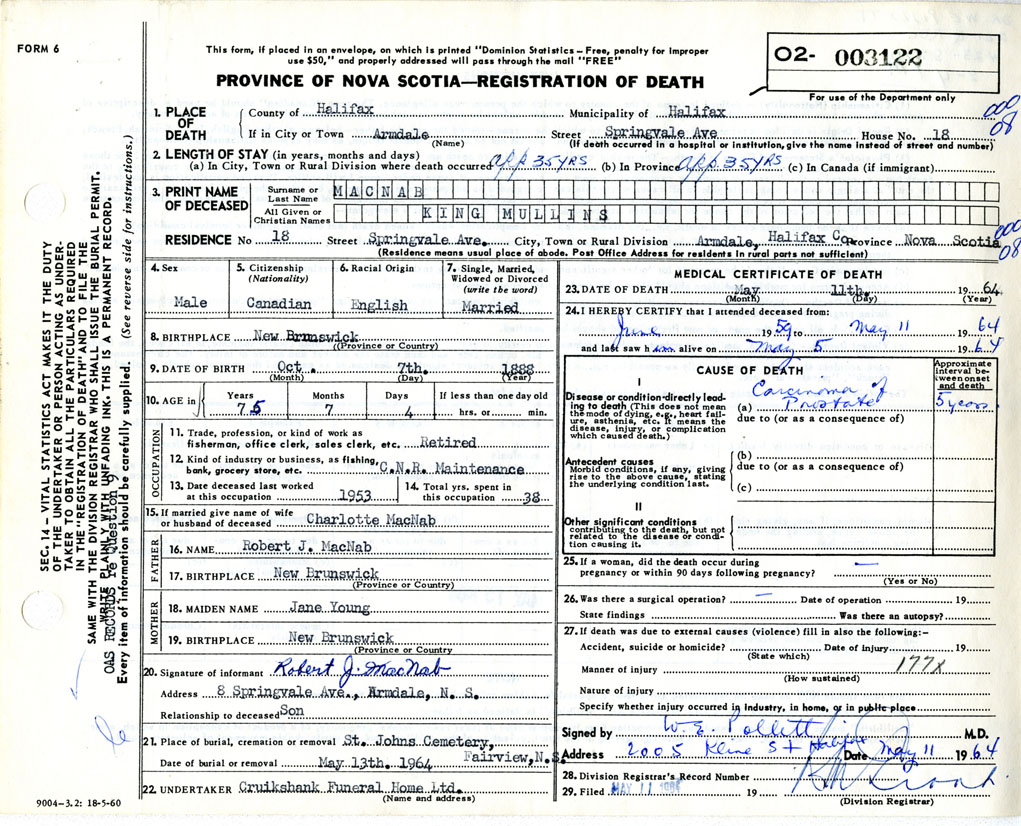 FORM 6
This form, if placed in an envelope, on which is printed "Dominion Statistics – Free, penalty for improper
use $50," and properly addressed will pass through the mail "FREE"
PROVINCE OF NOVA SCOTIA—REGISTRATION OF DEATH
O2- 003122
For use of the Department only
000
08
1. PLACE OF DEATH
County of Halifax Municipality of Halifax
If in City or Town Armdale (Name) Street Springvale Ave House No. 18
(If death occurred in a hospital or institution, give the name instead of street and number)
2. LENGTH OF STAY (in years, months and days)
(a) In City, Town or Rural Division where death occurred app 35 yrs (b) In Province app 35 yrs (c) In Canada (if immigrant)
3. PRINT NAME OF DECEASED
Surname or Last Name MACNAB
All Given or Christian Names KING MULLINS
RESIDENCE No 18 Street Springvale Ave. City, Town or Rural Division Armdale, Halifax Co. Province Nova Scotia
000
08
(Residence means usual place of abode. Post Office Address for residents in rural parts not sufficient)
4. Sex
Male
5. Citizenship (Nationality)
Canadian
6. Racial Origin
English
7. Single, Married, Widowed or Divorced (write the word)
Married
8. BIRTHPLACE New Brunswick
(Province or Country)
9. DATE OF BIRTH Oct. 7th. 1888
(Month) (Day) (Year)
10. AGE in Years Months Days If less than one day old
75 7 4 hrs. or min.
OCCUPATION
11. Trade, profession, or kind of work as
fisherman, office clerk, sales clerk, etc. Retired
12. Kind of industry or business, as fishing,
bank, grocery store, etc. C.N.R. Maintenance
13. Date deceased last worked at this occupation 1953
14. Total yrs. spent in this occupation 38
15. If married give name of wife
or husband of deceased Charlotte MacNab
FATHER
16. NAME Robert J. MacNab
17. BIRTHPLACE New Brunswick
(Province or Country)
MOTHER
18. MAIDEN NAME Jane Young
19. BIRTHPLACE New Brunswick
(Province or Country
20. Signature of informant Robert J. MacNab
Address 8 Springvale Ave., Armdale, N. S.
Relationship to deceased Son
21. Place of burial, cremation or removal St. Johns Cemetery,
Fairview, N.S.
Date of burial or removal May 13th. 1964
22. UNDERTAKER Cruikshank Funeral Home Ltd.
(Name and address)
MEDICAL CERTIFICATE OF DEATH
23. DATE OF DEATH May 11th. 1964
(Month) (Day) (Year)
24. I HEREBY CERTIFY that I attended deceased from:
June 1959 to May 11 1964
and last saw him alive on May 5 1964
CAUSE OF DEATH
Approximate interval between onset and death
I
Disease or condition directly leading to death (This does not mean the mode of dying, e.g., heart failure, asthenia, etc. It means the disease, injury, or complication which caused death.)
(a) Carcinoma of Prostate 5 years
due to (or as a consequence of)
Antecedent causes
Morbid conditions, if any, giving rise to the above cause, stating the underlying condition last.
(b)
due to (or as a consequence of)
(c)
II
Other significant conditions
contributing to the death, but not related to the disease or condition causing it.
25. If a woman, did the death occur during
pregnancy or within 90 days following pregnancy? —
(Yes or No)
26. Was there a surgical operation? — Date of operation 19
State findings Was there an autopsy?
27. If death was due to external causes (violence) fill in also the following:–
Accident, suicide or homicide? Date of injury 19
(State which)
Manner of injury 177X
(How sustained)
Nature of injury
Specify whether injury occurred in industry, in home, or in public place
Signed by W. E. Pollett M.D.
Address 2005 Kline St Halifax Date May 11 1964
28. Division Registrar's Record Number
29. Filed MAY 11 19
(Division Registrar)
9004–3.2: 18-5-60
SEC. 14 – VITAL STATISTICS ACT MAKES IT THE DUTY
OF THE UNDERTAKER OR PERSON ACTING AS UNDER-
TAKER TO OBTAIN ALL THE PARTICULARS REQUIRED
IN THE "REGISTRATION OF DEATH" AND TO FILE THE
SAME WITH THE DIVISION REGISTRAR WHO SHALL ISSUE THE BURIAL PERMIT.
WRITE PLAINLY WITH UNFADING INK. THIS IS A PERMANENT RECORD.
OAS RECORDS re question 9
Every item of information should be carefully supplied. (See reverse side for instructions.)